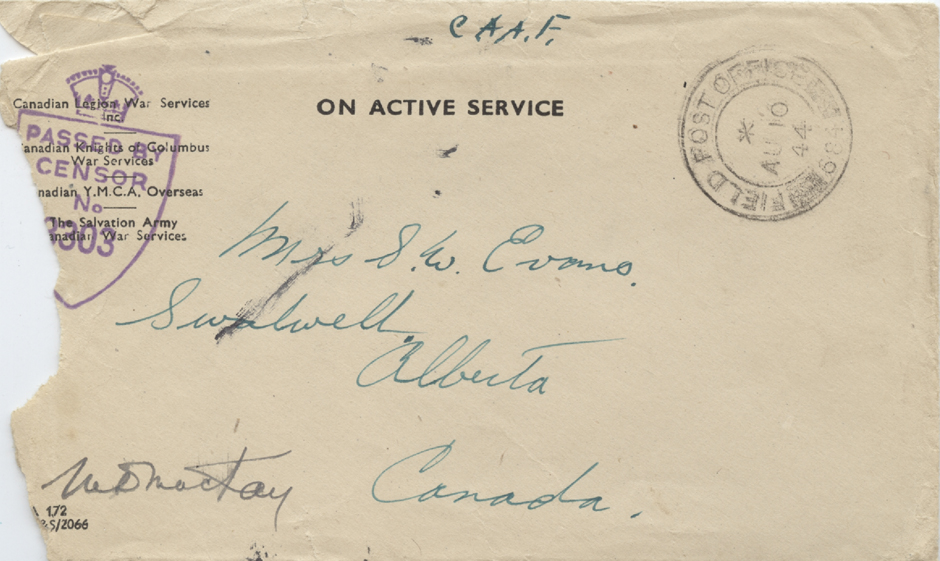 C A A.F.
ON ACTIVE SERVICE
Canadian Legion War Services
Inc.
anadian Knights of Columbus
War Services
nadian Y.M.C.A. Overseas
The Salvation Army
anadian War Services
PASSED BY
CENSOR
No
303
FIELD POST OFFICE
689
*
AU 10
44
Mrs S.W. Evans.
Swalwell.
Alberta
Canada.
172
5/2066